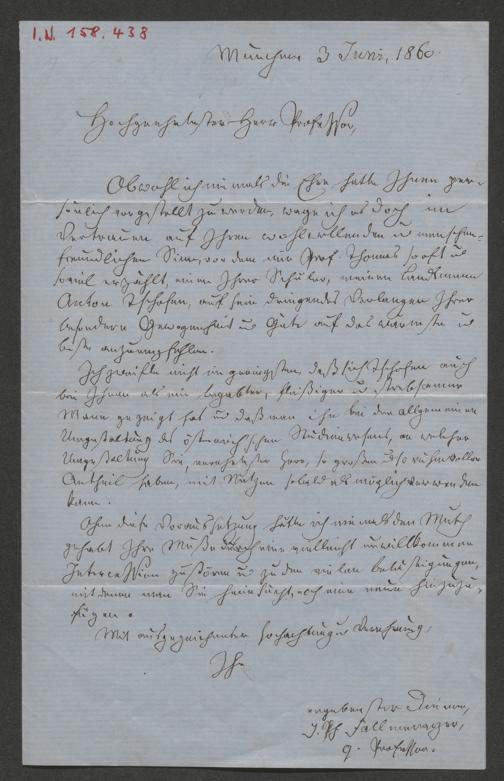 I.N. 158.438
München 3 Juni, 1860.
Hochgeehrtester Herr Professor,
Obwohl ich niemals die Ehre hatte Ihnen per-
sönlich vorgestellt zu werden, wage ich es doch im
Vertrauen auf Ihren wohlwollenden u menschen-
freundlichen Sinn, von dem mir Prof. Thomas so oft u
soviel erzählt, einen Ihrer Schüler, meinen Landsmann
Anton Tschofen, auf sein dringendes Verlangen Ihrer
besondern Gewogenheit u Güte auf das wärmste u
beste anzuempfehlen.
Ich zweifle nicht im geringsten, daß sich Tschofen auch
bei Ihnen als ein begabter, fleißiger u strebsamer
Mann gezeigt hat u daß man ihn bei der allgemeinen
Umgestaltung des österreichischen Studienwesens, an welcher
Umgestaltung Sie, verehrtester Herr, so großen u so ruhmvollen
Antheil haben, mit Nutzen sobald als möglich verwenden
kann.
Ohne diese Voraussetzung hätte ich niemals den Muth
gehabt Ihre Muße durch eine vielleicht unwillkommene
Intercession zu stören u zu den vielen Belästigungen,
mit denen man Sie heimsucht, noch eine neue hinzuzu-
fügen.
Mit ausgezeichneter Hochachtung u Verehrung,
Ihr
ergebenster Diener,
J. Ph. Fallmerayer,
q. Professor.